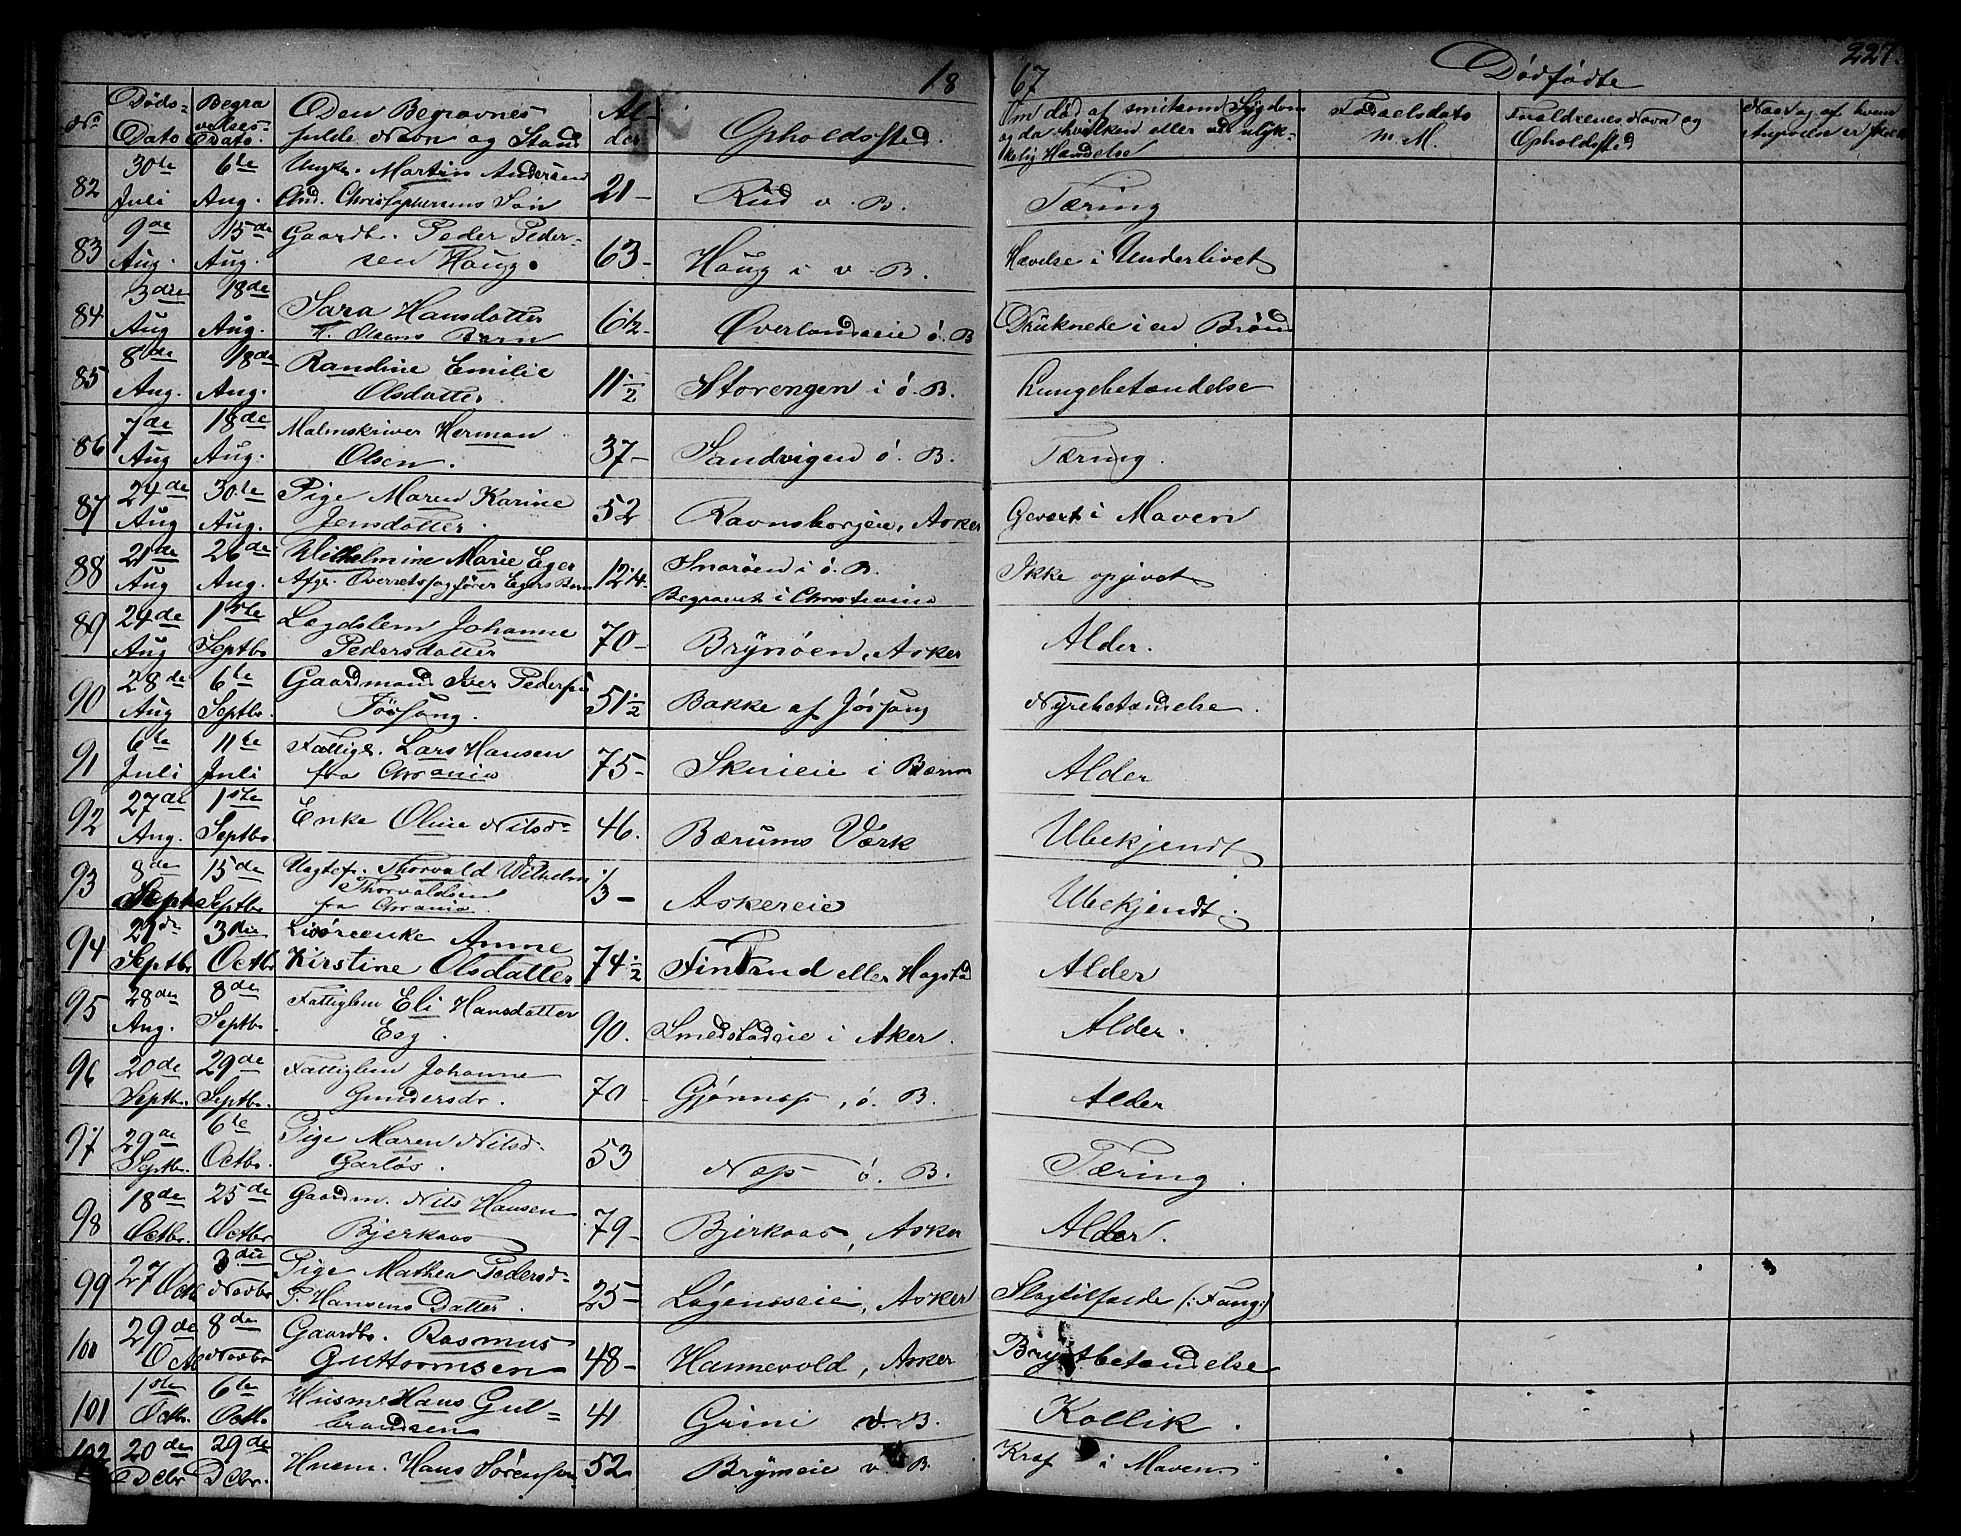 18 67 Dødfødte 227.
No Døds-Dato Begravelses-Dato. Den Begravnes fulde Navn og Stand Alder Opholdssted. Om død af smitsom Sygdom og da hvilken eller ved ulykkelig Hændelse Fødselsdato M. Forældrenes Navn og Opholdssted Naar og af hvem
82 30te Juli 6te Aug. Ungk. Martin Andersen And. Christophersens Søn 21 - Rud v. B. Tæring
83 9de Aug. 15de Aug. Gaardbr. Peder Pedersen Haug. 63 - Haug i v. B. Hævelse i Underlivet
84 3die Aug 18de Aug. Sara Hansdatter H. Olsens Barn 6 1/2 - Øverlandseie ø. B Druknede i en Brønd
85 8de Aug. 18de Aug. Randine Emilie Olsdatter 11 1/2 Storengen i ø. B. Lungebetændelse
86 7de Aug 18de Aug. Malmskriver Herman Olsen. 37 - Sandvigen ø. B. Tæring.
87 24de Aug 30te Aug. Pige Maren Karine Jensdatter. 52 Ravnsborgeie, Asker Gevext i Maven
88 21de Aug 26de Aug. Wilhelmine Marie Eger Afg. Overretssagfører Egers Barn 12 1/4. Snarøen i ø. B. Begravet i Christiania Ikke opgivet
89 24de Aug 1ste Septbr Lægdslem Johanne Pedersdatter 70 - Brønøen, Asker Alder.
90 28de Aug 6te Septbr. Gaardmand Iver Pedersen Jøssong. 51 1/2 Bakke af Jøssong Nyrebetændelse.
91 6te Juli 11te Juli Fattige. Lars Hansen fra Chrania 75 - Skuieie i Bærum Alder
92 27de Aug. 1ste Septbr. Enke Oline Nilsd. 46. Bærums Værk Ubekjendt
93 8de Septr 15de Septbr. Uægtef. Thorvald Wilhelm Thorvaldsen fra Chrania. 1/3 - Askereie Ubekjendt.
94 29de Septbr 3die Octbr Enke Anne Kirstine Olsdatter 74 1/2 Finsrud eller Hogstad Alder
95 28de Aug. 8de Septbr Fattiglem Eli Hansdatter Eeg. 90. Smedstadeie i Aker. Alder.
96 20de Septbr. 29de Septbr. Fattiglem Johanne Gundersdr. 70 Gjønnes, ø. B. Alder
97 29de Septbr. 6te Octbr. Pige Maren Nilsd. Garløs. 53 Næs ø. B. Tæring.
98 18de Octbr. 25de Octbr Gaardm. Nils Hansen Bjerkaas 79 - Bjerkaas, Asker Alder.
99 27 Octb 3die Novbr Pige Mathea Pedersd. P. Hansens Datter. 25 - Løgenæseie, Asker Slagtilfælde (: Fang:)
100 29de Oct 8de Novbr Gaardbr. Rasmus Guttormsen 48 - Hannevold, Asker Brystbetændelse
101 1ste Octbr. 6te Octbr Husm. Hans Gulbrandsen 41 Grini v. B. Kollik.
102 20de Dcbr 29de Dcbr. Husm. Hans Sørensen 52 v. B. i Maven.